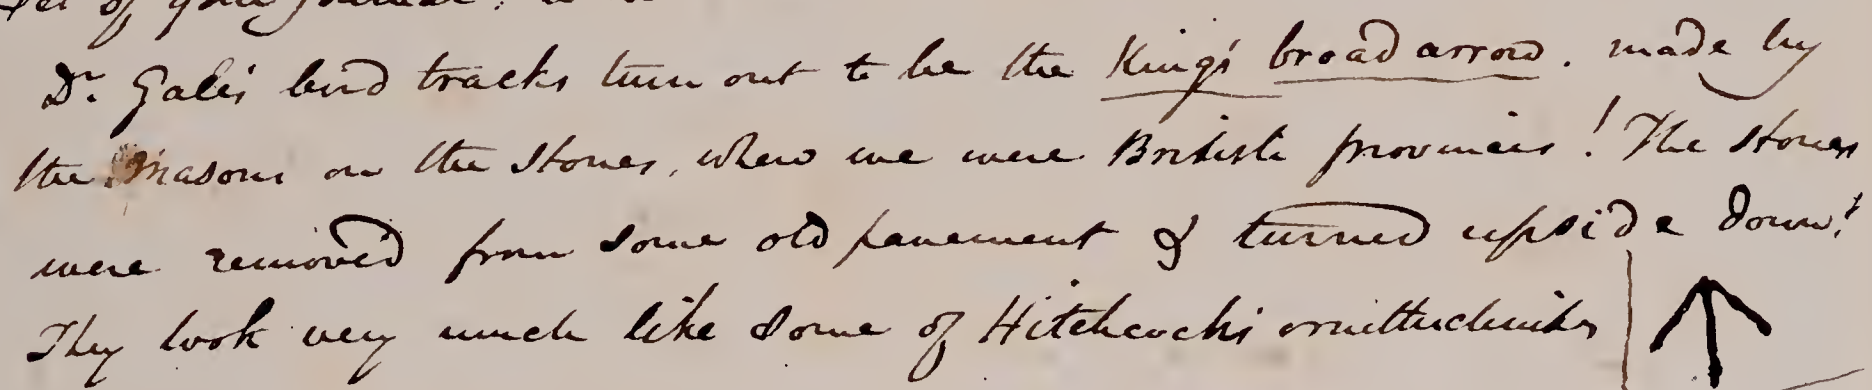 of your Journal.
Dr. Gale's bird tracks turn out to be the King's broad arrow. made by
the Masons on the Stones, when we were British provinces! The Stones
were removed from some old pavement & turned upside down!
They look very much like some of Hitchcock's ornithichnites